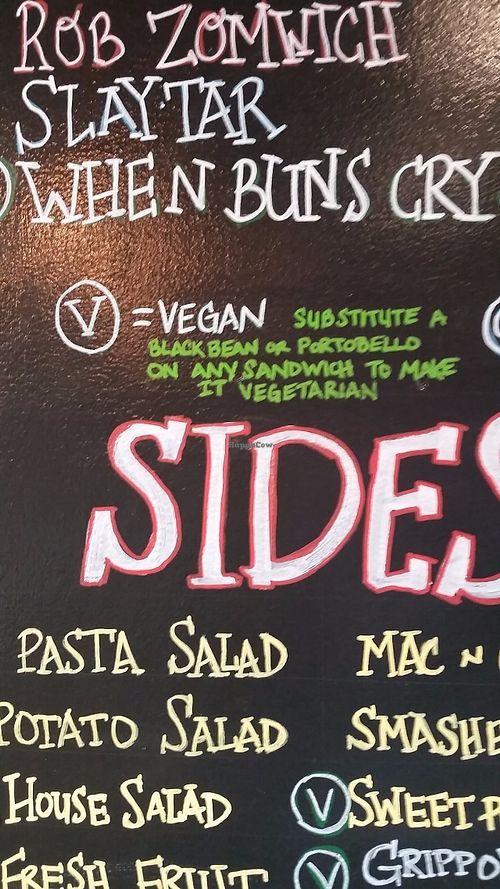 ROB ZOMWICH
SLAY·TAR
WHEN BUNS CRY
V = VEGAN SUBSTITUTE A
BLACK BEAN OR PORTOBELLO
ON ANY SANDWICH TO MAKE
IT VEGETARIAN
HappyCow
SIDES
PASTA SALAD MAC N
POTATO SALAD SMASHE
HOUSE SALAD V SWEET P
FRESH FRUIT V GRIPPO